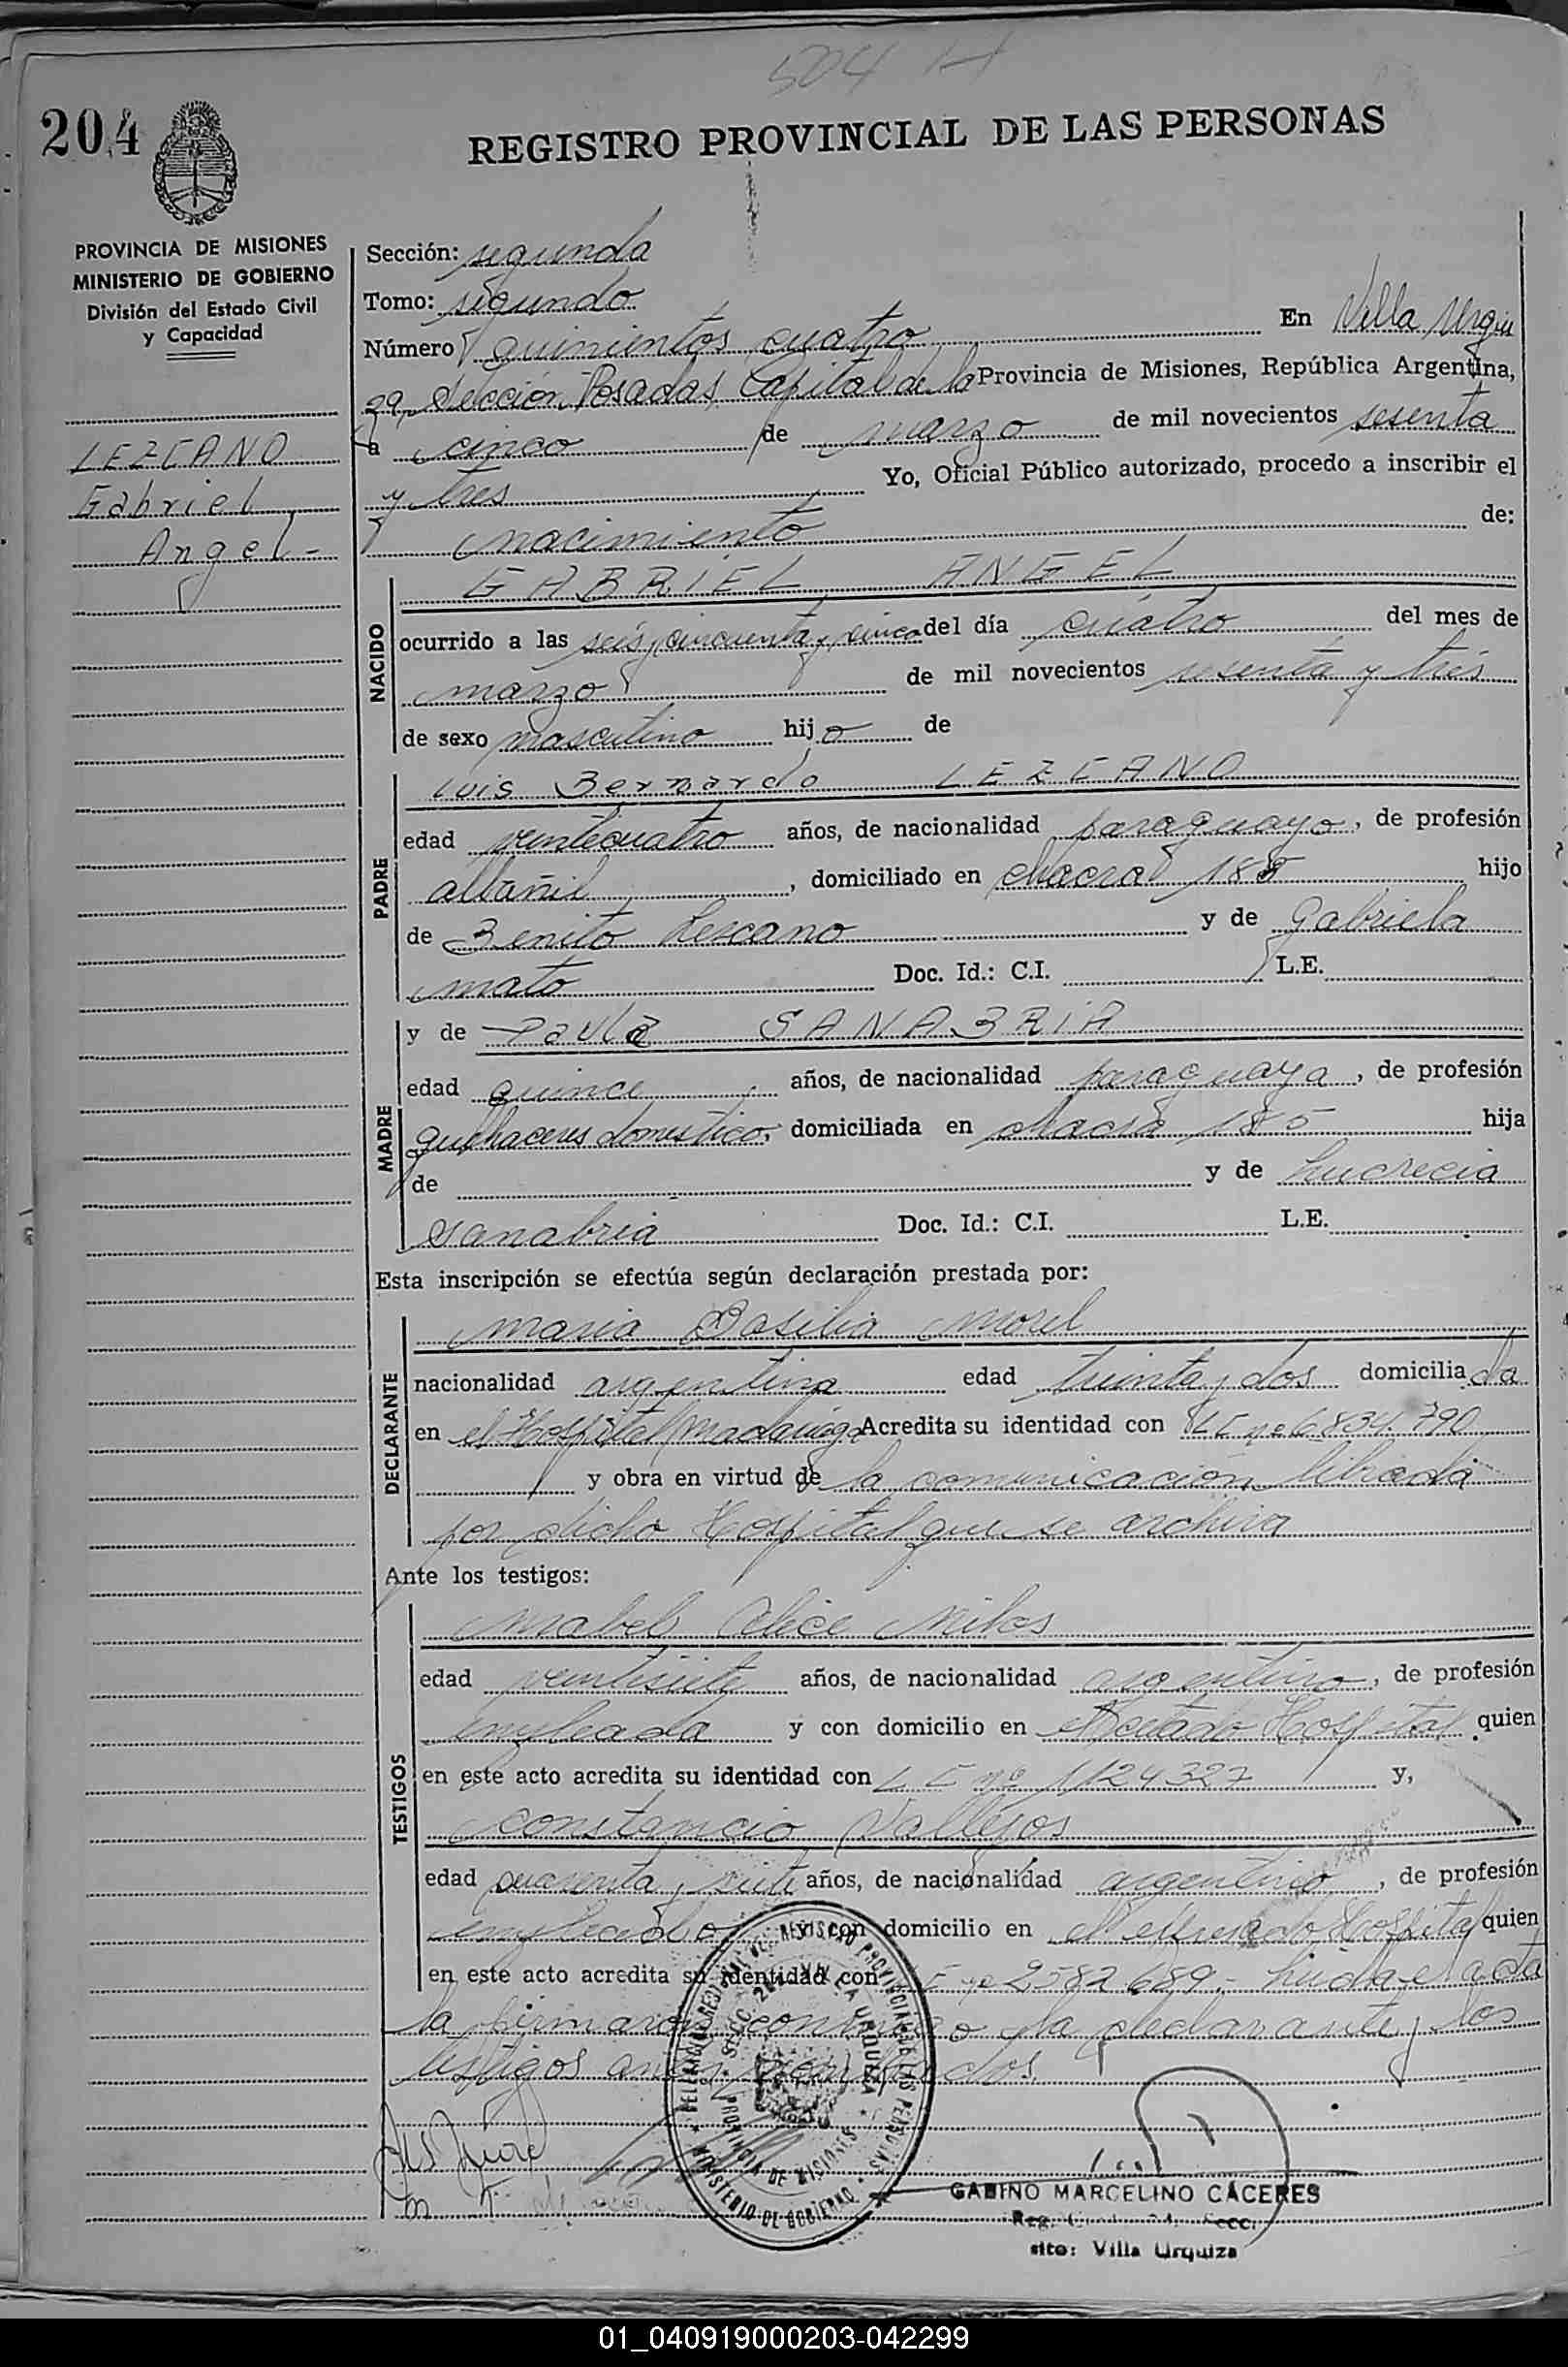 504 H
204
REGISTRO PROVINCIAL DE LAS PERSONAS
PROVINCIA DE MISIONES
MINISTERIO DE GOBIERNO
División del Estado Civil
y Capacidad
LEZCANO
Gabriel
Angel-
Sección: segunda
Tomo: segundo
Número quinientos cuatro En Villa Urqui
za, Sección Posadas Capital de la Provincia de Misiones, República Argentina,
a cinco de marzo de mil novecientos sesenta
y tres Yo, Oficial Público autorizado, procedo a inscribir el
nacimiento de:
NACIDO
GABRIEL ANGEL
ocurrido a las seis y cincuenta y cinco del día cuatro del mes de
marzo de mil novecientos sesenta y tres
de sexo masculino hijo de
PADRE
Luis Bernardo LEZCANO
edad veinticuatro años, de nacionalidad paraguayo, de profesión
albañil, domiciliado en chacra 185 hijo
de Benito Lescano y de Gabriela
mato Doc. Id.: C.I. L.E.
MADRE
y de Paula SANABRIA
edad quince años, de nacionalidad paraguaya, de profesión
quehaceres domestico, domiciliada en chacra 185 hija
de y de Lucrecia
Sanabria Doc. Id.: C.I. L.E.
Esta inscripción se efectúa según declaración prestada por:
DECLARANTE
Maria Basilia Morel
nacionalidad argentina edad treinta y dos domiciliada
en el Hospital Madariaga Acredita su identidad con L C nº 6834.790
y obra en virtud de la comunicación librada
por dicho Hospital que se archiva
Ante los testigos:
TESTIGOS
Mabel Alice Milos
edad veintisiete años, de nacionalidad argentina, de profesión
empleada y con domicilio en el citado Hospital quien
en este acto acredita su identidad con L C nº 1124327 y,
Constancio Vallejos
edad cuarenta y siete años, de nacionalidad argentino, de profesión
empleado y con domicilio en el expresado Hospital quien
en este acto acredita su identidad con nº 2582689.- Leida el acta
la firmaron conmigo la declarante y los
testigos
DELEGACION REGISTRO PROVINCIAL DE LAS PERSONAS
SECC. VILLA URQUIZA
PROVINCIA DE MISIONES
MINISTERIO DE GOBIERNO
GABINO MARCELINO CACERES
Secc.
sito: Villa Urquiza
01_040919000203-042299